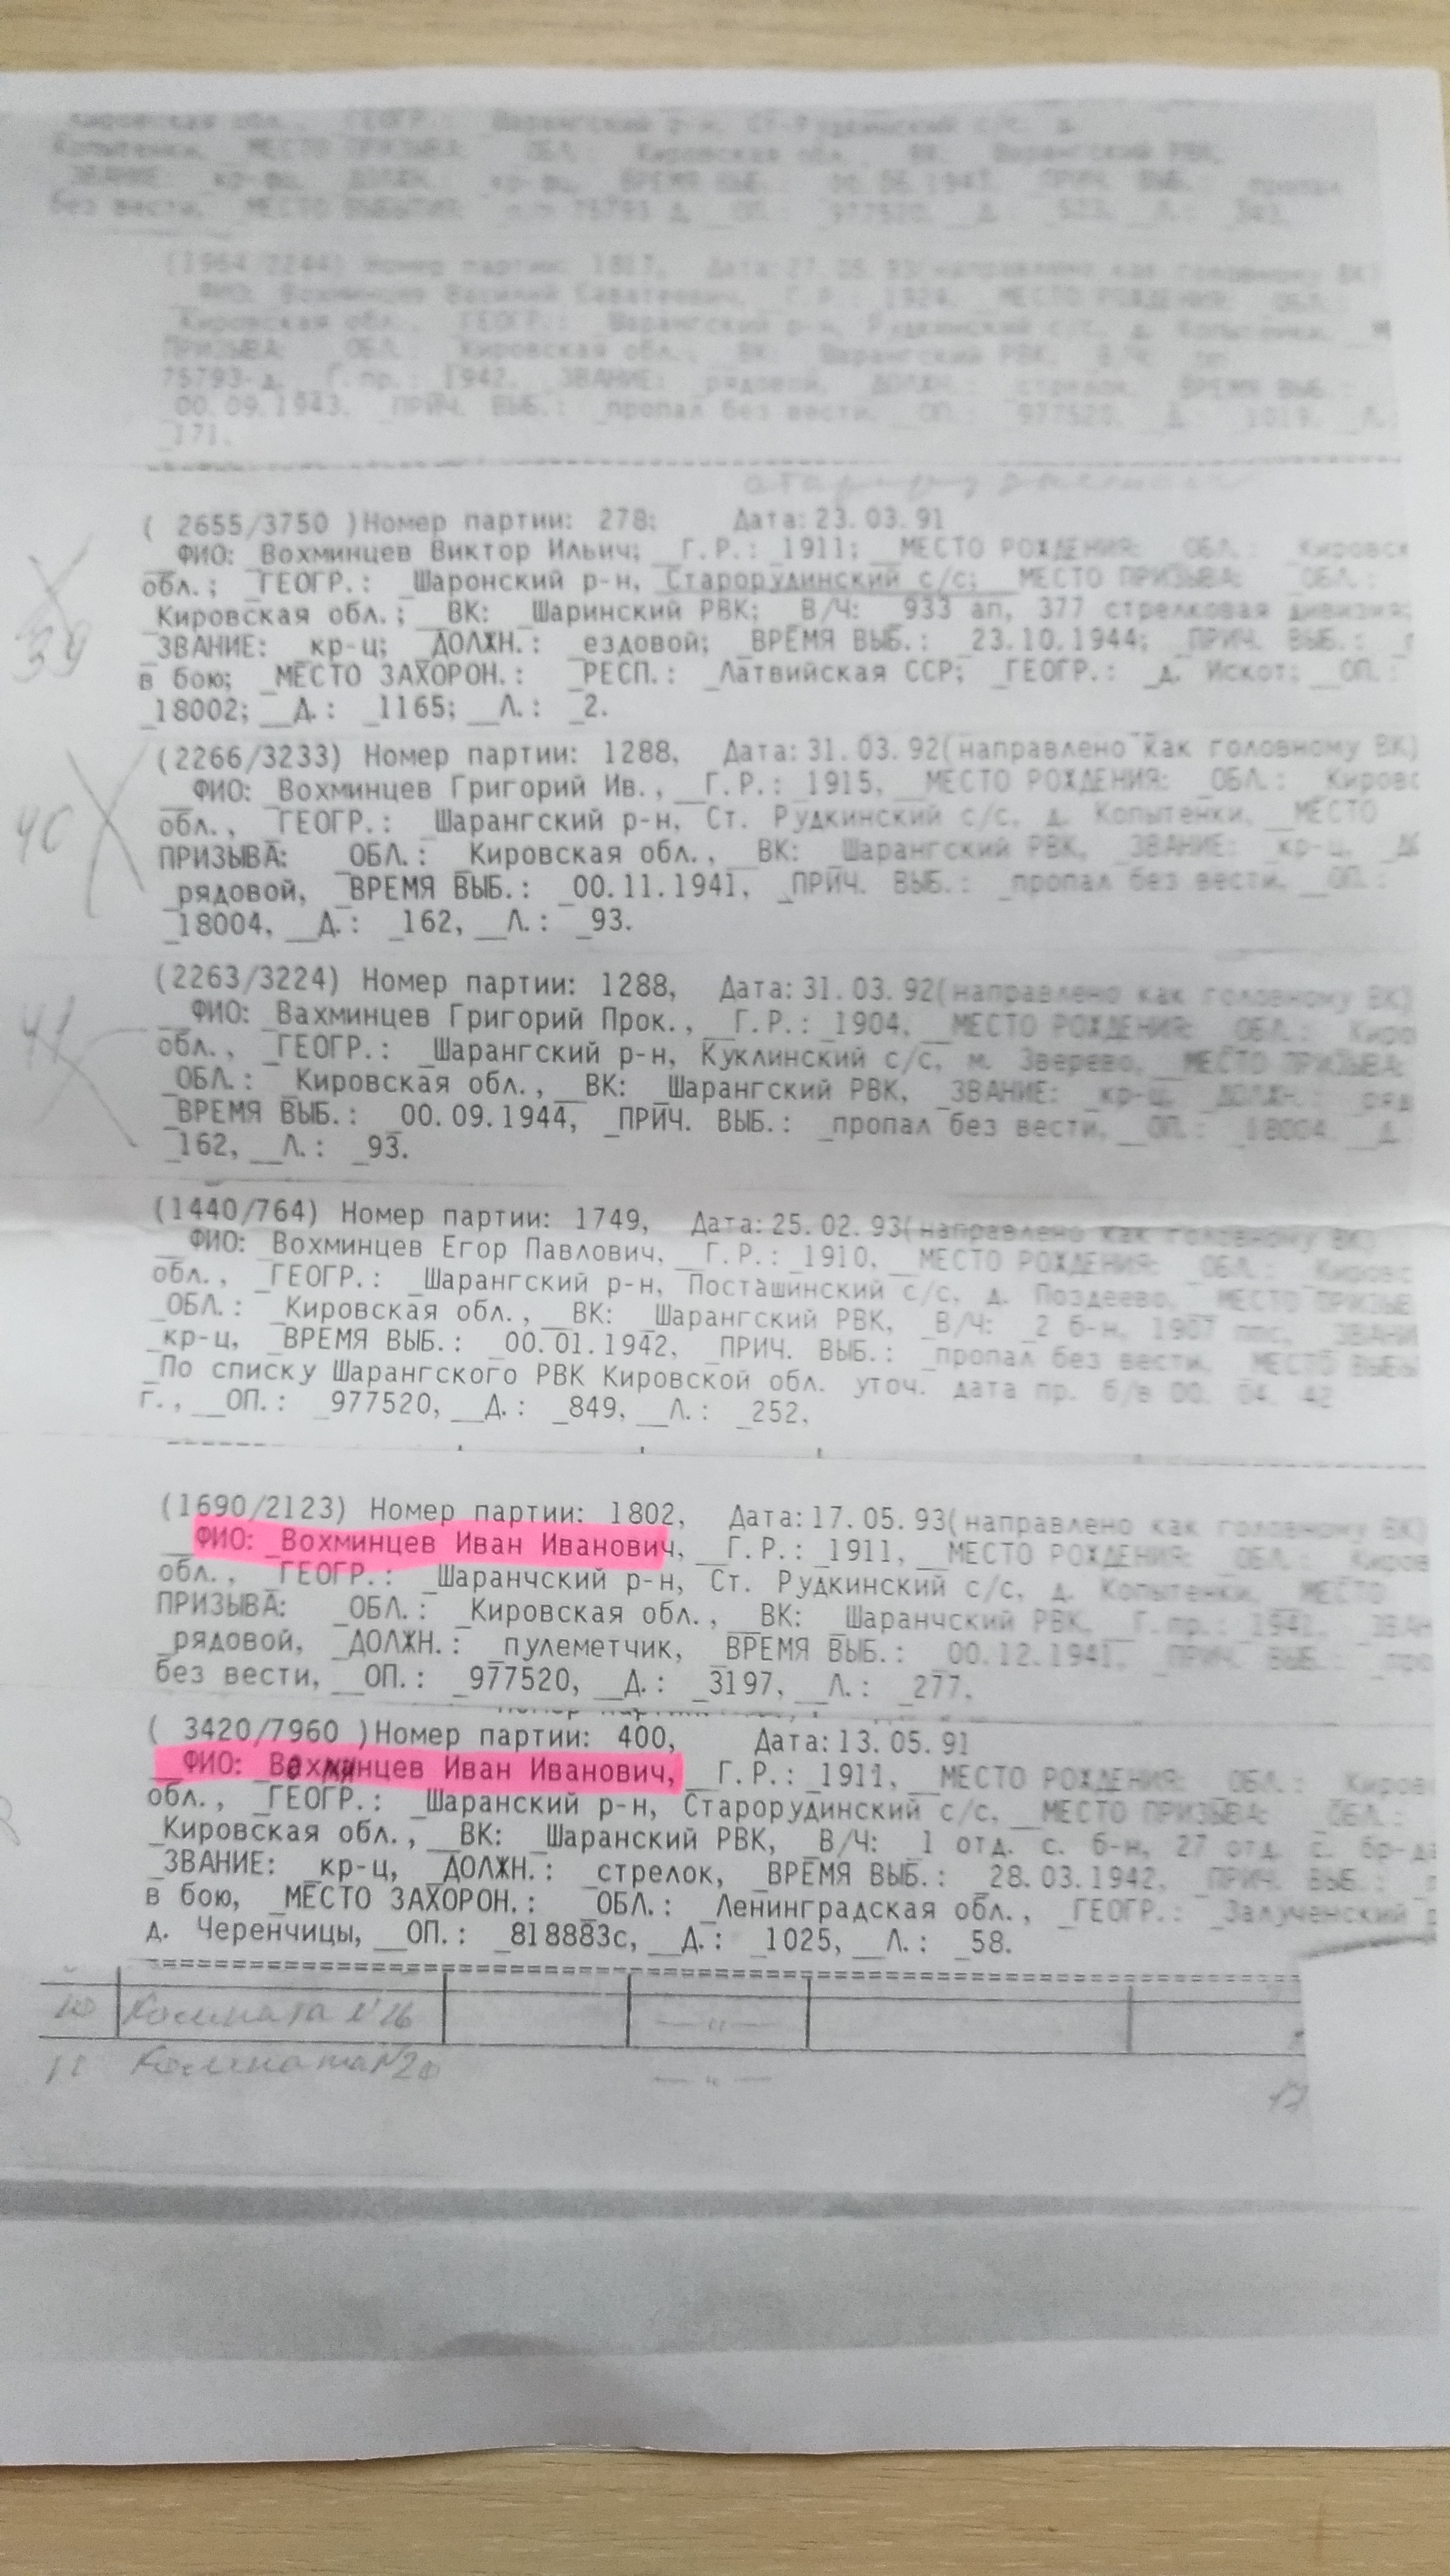 Кировская обл., ГЕОГР.: Шарангский р-н, Ст-Рудкинский с/с, д.
Копытенки, _МЕСТО ПРИЗЫВА: _ОБЛ.: _Кировская обл., _ВК: _Шарангский РВК,
_ЗВАНИЕ: _кр-ц, _ДОЛЖН.: _кр-ц, _ВРЕМЯ ВЫБ.: _00.06.1943, _ПРИЧ. ВЫБ.: _пропал
без вести, _МЕСТО ВЫБЫТИЯ: 75793 Д, __ОП.: _977520, __Д.: _523, __Л.:
(1964/2244) Номер партии: 1817, Дата: 27.05.93(направлено как головному ВК)
__ФИО: _Вохминцев Василий Саватеевич, __Г.Р.: _1924, __МЕСТО РОЖДЕНИЯ: _ОБЛ.:
_Кировская обл., _ГЕОГР.: _Шарангский р-н, Рудкинский с/с, д. Копытенки, __М
ПРИЗЫВА: _ОБЛ.: _Кировская обл., __ВК: _Шарангский РВК, _В/Ч: _пп
75793-д, _Г.пр.: _1942, _ЗВАНИЕ: _рядовой, _ДОЛЖН.: _стрелок, _ВРЕМЯ ВЫБ.:
_00.09.1943, _ПРИЧ. ВЫБ.: _пропал без вести, __ОП.: _977520, __Д.: _1019, __Л.:
_171.
( 2655/3750 )Номер партии: 278; Дата: 23.03.91
__ФИО: _Вохминцев Виктор Ильич; __Г.Р.: _1911; __МЕСТО РОЖДЕНИЯ: _ОБЛ.: _Кировск
обл.; _ГЕОГР.: _Шаронский р-н, _Старорудинский с/с; __МЕСТО ПРИЗЫВА: _ОБЛ.:
_Кировская обл.; __ВК: _Шаринский РВК; _В/Ч: _933 ап, 377 стрелковая дивизия;
39 _ЗВАНИЕ: _кр-ц; _ДОЛЖН.: _ездовой; _ВРЕМЯ ВЫБ.: _23.10.1944; _ПРИЧ. ВЫБ.:
в бою; _МЕСТО ЗАХОРОН.: _РЕСП.: _Латвийская ССР; _ГЕОГР.: _д. Искот; __ОП.:
_18002; __Д.: _1165; __Л.: _2.
(2266/3233) Номер партии: 1288, Дата: 31.03.92(направлено как головному ВК)
__ФИО: _Вохминцев Григорий Ив., __Г.Р.: _1915, __МЕСТО РОЖДЕНИЯ: _ОБЛ.: _Кировс
40 обл., _ГЕОГР.: _Шарангский р-н, Ст. Рудкинский с/с, д. Копытенки, __МЕСТО
ПРИЗЫВА: _ОБЛ.: _Кировская обл., __ВК: _Шарангский РВК, _ЗВАНИЕ: _кр-ц,
_рядовой, _ВРЕМЯ ВЫБ.: _00.11.1941, _ПРИЧ. ВЫБ.: _пропал без вести, __ОП.:
_18004, __Д.: _162, __Л.: _93.
(2263/3224) Номер партии: 1288, Дата: 31.03.92(направлено как головному ВК)
41 __ФИО: _Вахминцев Григорий Прок., __Г.Р.: _1904, __МЕСТО РОЖДЕНИЯ: _ОБЛ.: _Киро
обл., _ГЕОГР.: _Шарангский р-н, Куклинский с/с, м. Зверево, __МЕСТО ПРИЗЫВА:
_ОБЛ.: _Кировская обл., __ВК: _Шарангский РВК, _ЗВАНИЕ: _кр-ц, _ДОЛЖН.: _ряд
_ВРЕМЯ ВЫБ.: _00.09.1944, _ПРИЧ. ВЫБ.: _пропал без вести, __ОП.: _18004, __Д.:
_162, __Л.: _93.
(1440/764) Номер партии: 1749, Дата: 25.02.93(направлено как головному ВК)
__ФИО: _Вохминцев Егор Павлович, __Г.Р.: _1910, __МЕСТО РОЖДЕНИЯ: _ОБЛ.: _Кировс
обл., _ГЕОГР.: _Шарангский р-н, Посташинский с/с, д. Поздеево, __МЕСТО ПРИЗЫВ
_ОБЛ.: _Кировская обл., __ВК: _Шарангский РВК, _В/Ч: _2 б-н, 1987 ппс, _ЗВАНИ
_кр-ц, _ВРЕМЯ ВЫБ.: _00.01.1942, _ПРИЧ. ВЫБ.: _пропал без вести, _МЕСТО ВЫБЫ
_По списку Шарангского РВК Кировской обл. уточ. дата пр. б/в 00. 04. 42
г., __ОП.: _977520, __Д.: _849, __Л.: _252,
(1690/2123) Номер партии: 1802, Дата: 17.05.93(направлено как головному ВК)
__ФИО: _Вохминцев Иван Иванович, __Г.Р.: _1911, __МЕСТО РОЖДЕНИЯ: _ОБЛ.: _Киров
обл., _ГЕОГР.: _Шаранчский р-н, Ст. Рудкинский с/с, д. Копытенки, __МЕСТО
ПРИЗЫВА: _ОБЛ.: _Кировская обл., __ВК: _Шаранчский РВК, _Г.пр.: _1941, _ЗВАН
_рядовой, _ДОЛЖН.: _пулеметчик, _ВРЕМЯ ВЫБ.: _00.12.1941, _ПРИЧ. ВЫБ.: _про
без вести, __ОП.: _977520, __Д.: _3197, __Л.: _277,
( 3420/7960 )Номер партии: 400, Дата: 13.05.91
__ФИО: Вохминцев Иван Иванович, __Г.Р.: _1911, __МЕСТО РОЖДЕНИЯ: _ОБЛ.: _Киров
обл., _ГЕОГР.: _Шаранский р-н, Старорудинский с/с, __МЕСТО ПРИЗЫВА: _ОБЛ.:
_Кировская обл., __ВК: _Шаранский РВК, _В/Ч: _1 отд. с. б-н, 27 отд. с. бр-да
_ЗВАНИЕ: _кр-ц, _ДОЛЖН.: _стрелок, _ВРЕМЯ ВЫБ.: _28.03.1942, _ПРИЧ. ВЫБ.:
в бою, _МЕСТО ЗАХОРОН.: _ОБЛ.: _Ленинградская обл., _ГЕОГР.: _Залученский р
д. Черенчицы, __ОП.: _818883с, __Д.: _1025, __Л.: _58.
10 Комната №26 —"—
11 Комната №20 —"— 17